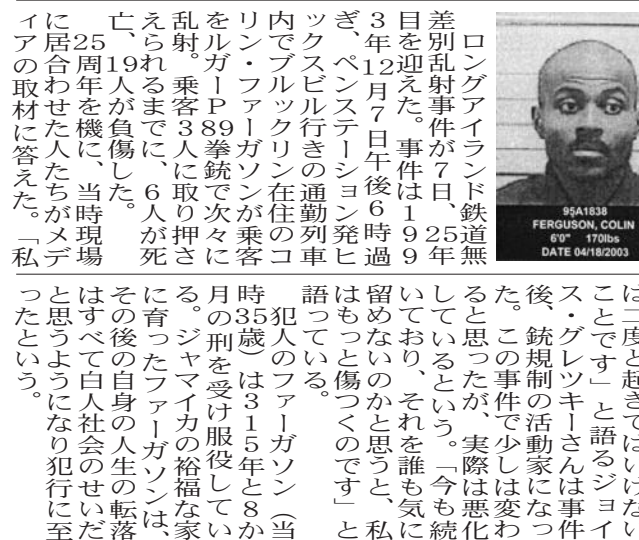 95A1838
FERGUSON, COLIN
6'0" 170lbs
DATE 04/18/2003
ロングアイランド鉄道無
差別乱射事件が７日、25年
目を迎えた。事件は１９９
３年12月７日午後６時過
ぎ、ペンステーション発ヒ
ックスビル行きの通勤列車
内でブルックリン在住のコ
リン・ファーガソンが乗客
をルガーＰ89拳銃で次々に
乱射。乗客３人に取り押さ
えられるまでに、６人が死
亡、19人が負傷した。
25周年を機に、当時現場
に居合わせた人たちがメデ
ィアの取材に答えた。「私
は二度と起きてはいけない
ことです」と語るジョイ
ス・グレツキーさんは事件
後、銃規制の活動家になっ
た。この事件で少しは変わ
ると思ったが、実際は悪化
しているという。「今も続
いており、それを誰も気に
留めないのかと思うと、私
はもっと傷つくのです」と
語っている。
犯人のファーガソン（当
時35歳）は３１５年と８か
月の刑を受け服役してい
る。ジャマイカの裕福な家
に育ったファーガソンは、
その後の自身の人生の転落
はすべて白人社会のせいだ
と思うようになり犯行に至
ったという。